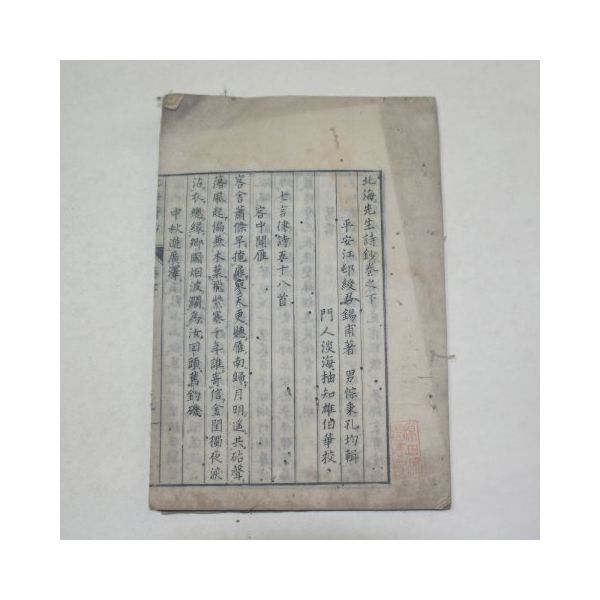 北海先生詩鈔卷之下
平安江邨綬君錫甫著 男悰秉孔均輯
門人淡海柚知雄伯華校
七言律詩五十八首
客中聞雁
客舍蕭條早掩扉寥天更聽雁南歸月明遥共砧聲
落風起偏兼木葉飛紫塞千年誰寄信金閨獨夜淚
沾衣總緣鄉國烟波闊爲汝回頭舊釣磯
中秋遊廣澤